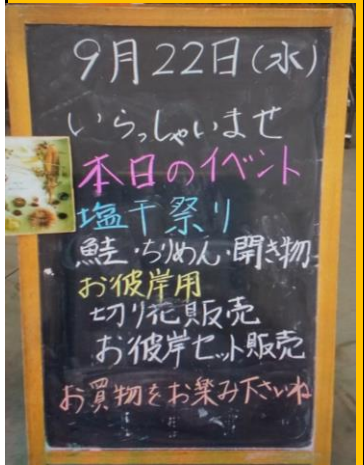 9月22日(水)
いらっしゃいませ
本日のイベント
塩干祭り
鮭・ちりめん・開き物
お彼岸用
切り花販売
お彼岸セット販売
お買物をお楽み下さいね